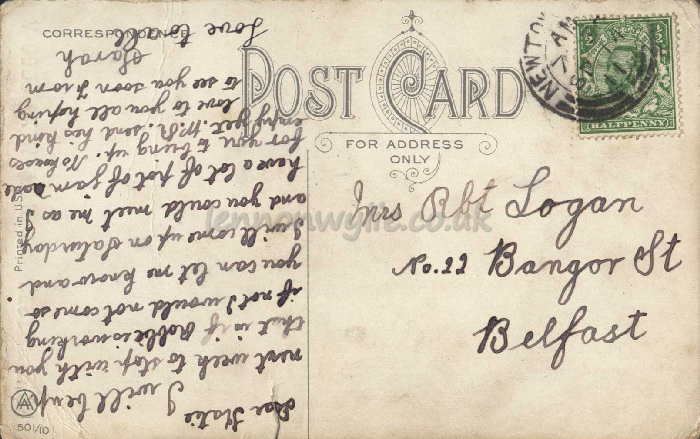 CORRESPONDENCE
POST CARD
FOR ADDRESS
ONLY
Mrs Rbt Logan
No. 22 Bangor St
Belfast
NEWTOW
AM
11
HALFPENNY
Printed in U.S.
AA
501/10
lennonwylie.co.uk
Dear Katie
I will be up
next week to stop with you
that is if Robbie is working
if not I would not come so
you can let me know and
I will come up on Saturday
and you could meet me as I
have a lot of pot of jam made
for you to bring up. No losses
enjoy yet. Mr. send his kind
love to you all hoping
to see you soon from
Sarah
Love to all